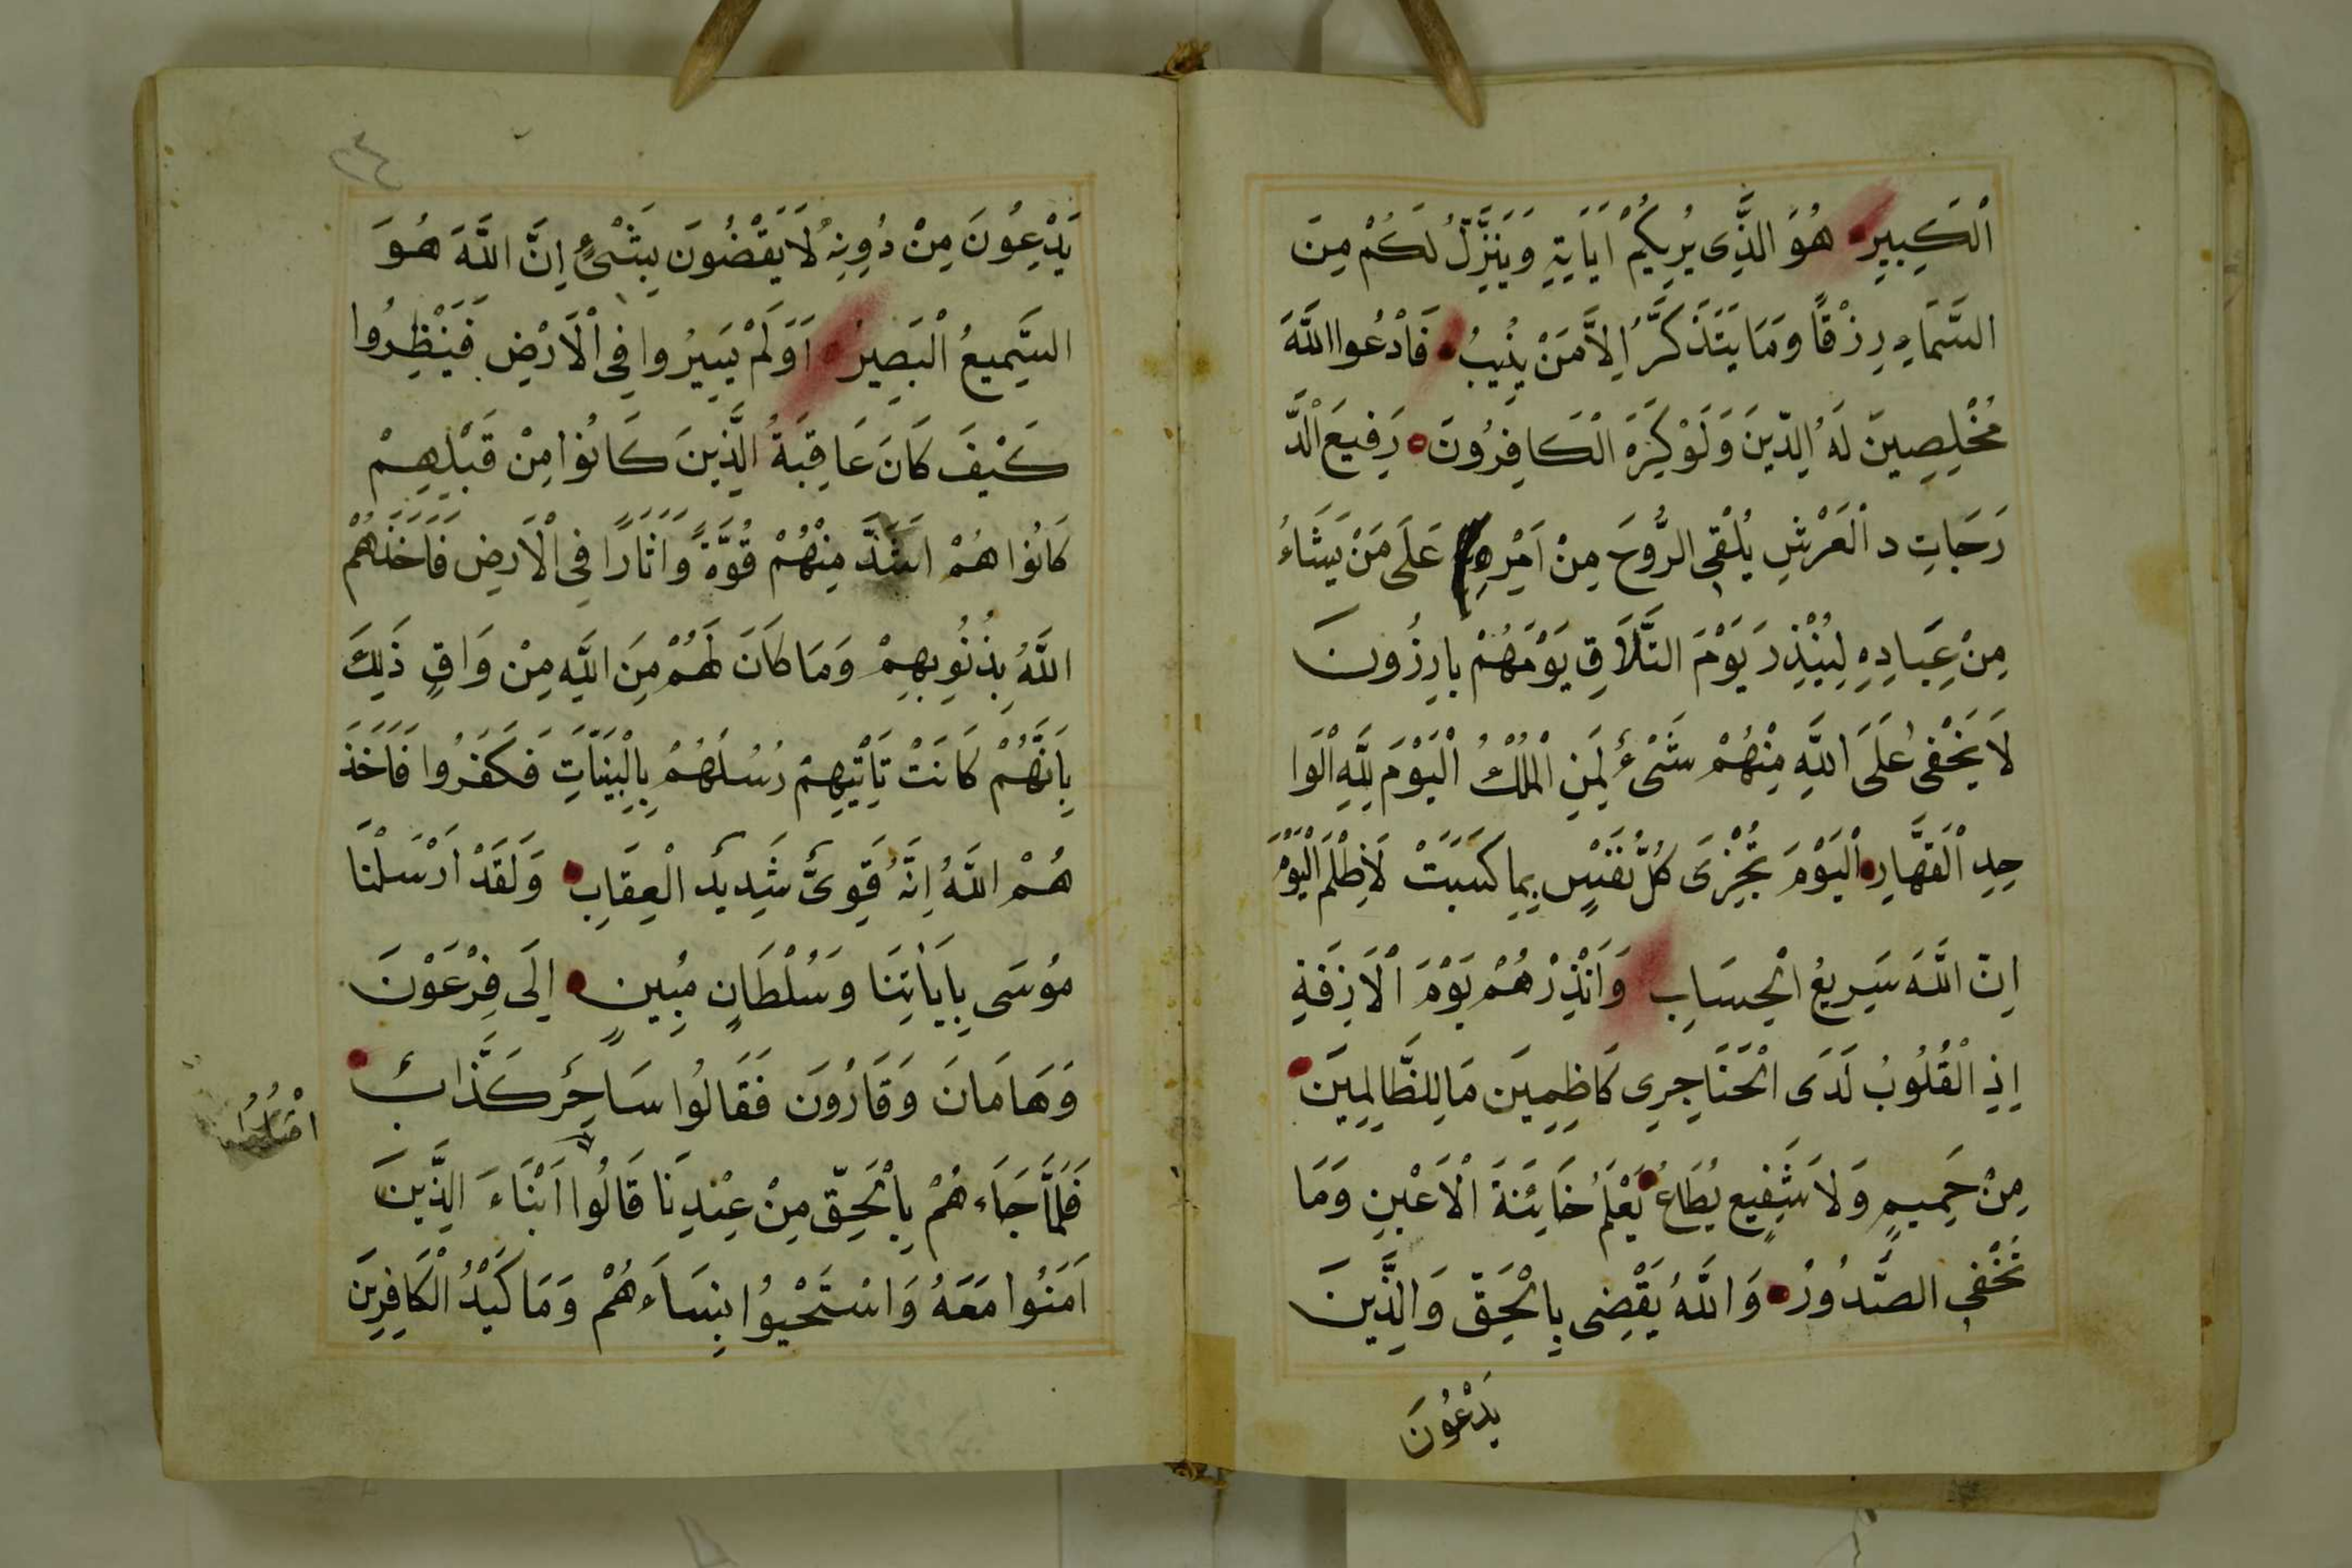 اَلْكَبِيرِ هُوَ الَّذِى يُرِيكُمْ اٰيَاتِهِ وَيُنَزِّلُ لَكُمْ مِنَ
السَّمَاءِ رِزْقًا وَمَا يَتَذَكَّرُ اِلاَّ مَنْ يُنِيبُ فَادْعُوا اللَّهَ
مُخْلِصِينَ لَهُ الدِّينَ وَلَوْ كَرِهَ الْكَافِرُونَ رَفِيعَ الدَّ
رَجَاتِ د الْعَرْشِ يُلْقِى الرُّوحَ مِنْ اَمْرِهِ عَلَى مَنْ يَشَاءُ
مِنْ عِبَادِهِ لِيُنْذِرَ يَوْمَ التَّلَاقِ يَوْمَهُمْ بارِزُونَ
لَا يَخْفٰى عَلَى اللَّهِ مِنْهُمْ شَىْءٌ لِمَنِ الْمُلْكُ الْيَوْمَ لِلَّهِ الْوَا
حِدِ الْقَهَّارِ اَلْيَوْمَ تُجْزَى كُلُّ نَفْسٍ بِمَا كَسَبَتْ لَا ظُلْمَ الْيَوْمَ
اِنَّ اللَّهَ سَرِيعُ الْحِسَابِ وَاَنْذِرْهُمْ يَوْمَ الْاَزِفَةِ
اِذِ الْقُلُوبُ لَدَى الْحَنَاجِرِى كَاظِمِينَ مَا لِلظَّالِمِينَ
مِنْ حَمِيمٍ وَلَا شَفِيعٍ يُطَاعُ يَعْلَمُ خَائِنَةَ الْاَعْيُنِ وَمَا
تُخْفِى الصُّدُورُ وَاللَّهُ يَقْضِى بِالْحَقِّ وَالَّذِينَ
يَدْعُونَ
٣٤
يَدْعُونَ مِنْ دُونِهِ لَا يَقْضُونَ بِشَىْءٍ اِنَّ اللَّهَ هُوَ
السَّمِيعُ الْبَصِيرُ اَوَلَمْ يَسِيرُوا فِى الْاَرْضِ فَيَنْظُرُوا
كَيْفَ كَانَ عَاقِبَةُ الَّذِينَ كَانُوا مِنْ قَبْلِهِمْ
كَانُوا هُمْ اَشَدَّ مِنْهُمْ قُوَّةً وَاٰثَارًا فِى الْاَرضِ فَاَخَذَهُمُ
اللَّهُ بِذُنُوبِهِمْ وَمَا كَانَ لَهُمْ مِنَ اللَّهِ مِنْ وَاقٍ ذٰلِكَ
بِاَنَّهُمْ كَانَتْ تَأْتِيهِمْ رُسُلُهُمْ بِالْبَيِّنَاتِ فَكَفَرُوا فَاَخَذَ
هُمْ اللَّهُ اِنَّهُ قَوِىٌّ شَدِيدُ الْعِقَابِ وَلَقَدْ اَرْسَلْنَا
مُوسَى بِاٰيَاتِنَا وَسُلْطَانٍ مُبِينٍ اِلَى فِرْعَوْنَ
وَهَامَانَ وَقَارُونَ فَقَالُوا سَاحِرٌ كَذَّابٌ
فَلَمَّا جَاءَهُمْ بِالْحَقِّ مِنْ عِنْدِنَا قَالُوا اَبْنَاءَ الَّذِينَ
اٰمَنُوا مَعَهُ وَاسْتَحْيُوا نِسَاءَهُمْ وَمَا كَيْدُ الْكَافِرِينَ
اقْتُلُوا